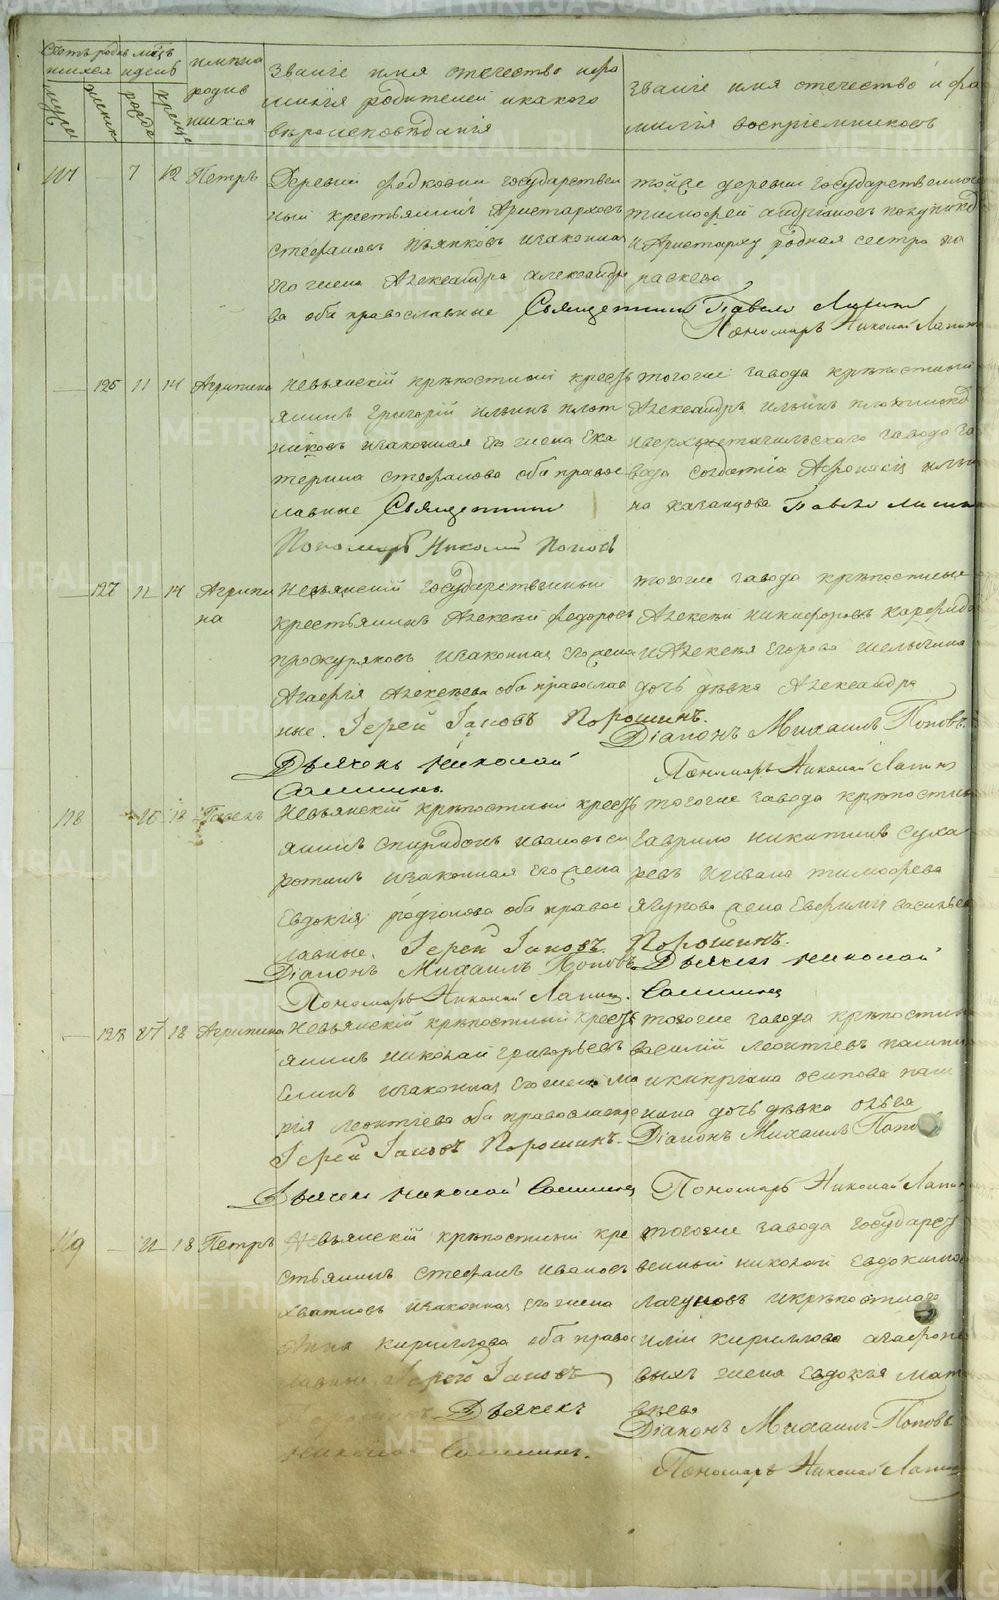 Счетъ родив мсцъ
шихся идень
имена
родив
шихся
звание имя отечество ифа
милия родителей икакого
вероисповѣдания
звание имя отечество и фа
милия восприемниковъ
муж
женск
рожд
крещ
127 — 7 12 Петръ
Деревни Федковки государствен
ный крестьянинъ Аристархъ
стефановъ изаконная
его жена Александра александро
ва оба православные Священникъ Павелъ
тойже деревни государственного
тимофей андреяновъ
иАристарху родная сестра па
раскева
Пономарь Николай Лапин
— 126 11 14 Агрипина
Невьянский крѣпостный кресть
янинъ григорий ильинъ плот
никовъ изаконная его жена Ека
терина стефанова оба правос
лавные Священникъ
Пономарь Николай Попов
тогоже завода крѣпостный
Александръ ильинъ плотников
иверхнетагильского завода за
вода солдатка Афонасия ильи
на казанцова Павелъ
— 127 11 14 Агрипи
на
Невьянский государственный
крестьянинъ Алексѣй федоровъ
проскуряковъ изаконная его жена
Агафия Алексѣева оба православ
ные. Iерей Iаковъ Порошинъ.
Дьячекъ Николай
тогоже завода крѣпостные
Алексѣй никифоровъ
иАлексѣя Егорова шелыгина
дочь дѣвка Александра
Дiаконъ Михаилъ Поповъ.
Пономарь Николай Лапинъ
128 — 16 18 Гавелъ
Невьянский крѣпостный кресть
янинъ спиридонъ ивановъ си
ротинъ изаконная его жена
Евдокия родионова оба правос
лавные. Iерей Iаковъ Порошинъ.
Дiаконъ Михаилъ Поповъ Дьячекъ Николай
Пономарь Николай Лапин.
тогоже завода крѣпостны
гаврило никитинъ суха
ревъ иивана тимофеева
ягупова жена Евфимия васильев
— 128 17 18 Агрипина
Невьянский крѣпостный кресть
янинъ николай григорьевъ
изаконная его жена Ма
рия леонтиева оба православные
Iерей Iаковъ Порошинъ. Дiаконъ Михаилъ Попов
Дьячекъ Николай
тогоже завода крѣпостны
василий леонтиевъ
икиприана осипова паш
нина дочь дѣвка
Пономарь Николай Лапин
129 — 11 18 Петръ
Невьянский крѣпостный кре
стьянинъ стефанъ ивановъ
хватковъ изаконная его жена
Анна кириллова оба право
славные. Iерей Iаковъ
Порошинъ. Дьячекъ
Николай
тогоже завода государст
венный николай Евдокимовъ
икрѣпостнаго
кириллова агафоно
выхъ жена Евдокия мат
вѣева
Дiаконъ Михаилъ Поповъ
Пономарь Николай Лапин
METRIKI.GASO-URAL.RU